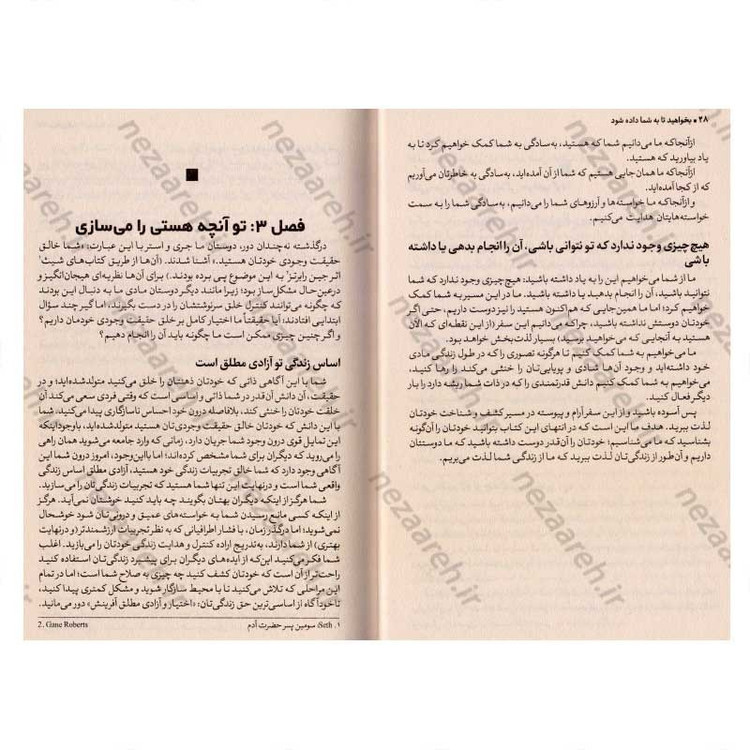 ۲۸ • بخواهید تا به شما داده شود
ازآنجاکه ما می‌دانیم شما که هستید، به‌سادگی به شما کمک خواهیم کرد تا به
یاد بیاورید که هستید.
ازآنجاکه ما همان‌جایی هستیم که شما از آن آمده‌اید، به‌سادگی به خاطرتان می‌آوریم
که از کجا آمده‌اید.
و ازآنجاکه ما خواسته‌ها و آرزوهای شما را می‌دانیم، به‌سادگی شما را به سمت
خواسته‌هایتان هدایت می‌کنیم.
هیچ‌چیزی وجود ندارد که تو نتوانی باشی، آن را انجام بدهی یا داشته
باشی
ما از شما می‌خواهیم این را به یاد داشته باشید: هیچ‌چیزی وجود ندارد که شما
نتوانید باشید، آن را انجام بدهید یا داشته باشید. ما در این مسیر به شما کمک
خواهیم کرد؛ اما ما همین‌جایی که هم‌اکنون هستید را نیز دوست داریم، حتی اگر
خودتان دوستش نداشته باشید، چراکه می‌دانیم این سفر (از این نقطه‌ای که الآن
هستید به آنجایی که می‌خواهید برسید) بسیار لذت‌بخش خواهد بود.
ما می‌خواهیم به شما کمک کنیم تا هرگونه تصوری را که در طول زندگی مادی
خود داشته‌اید و وجود آن‌ها شادی و پویایی‌تان را خنثی می‌کند را رها کنید،
می‌خواهیم به شما کمک کنیم دانش قدرتمندی را که در ذات شما ریشه دارد را بار
دیگر فعال کنید.
پس آسوده باشید و از این سفر آرام و پیوسته در مسیر کشف و شناخت خودتان
لذت ببرید. هدف ما این است که در انتهای این کتاب بتوانید خودتان را آن‌گونه
بشناسید که ما می‌شناسیم؛ خودتان را آن‌قدر دوست داشته باشید که ما دوستتان
داریم و آن‌طور از زندگی‌تان لذت ببرید که ما از زندگی شما لذت می‌بریم.
فصل ۳: تو آنچه هستی را می‌سازی
درگذشته نه‌چندان دور، دوستان ما جری و استر با این عبارت: «شما خالق
حقیقت وجودی خودتان هستید.» آشنا شدند. (آن‌ها از طریق کتاب‌های شیث۱
اثر جین رابرتز۲ به این موضوع پی برده بودند.) برای آن‌ها نظریه‌ای هیجان‌انگیز و
درعین‌حال مشکل‌ساز بود؛ زیرا مانند دیگر دوستان مادی ما به دنبال این بودند
که چگونه می‌توانند کنترل خلق سرنوشتشان را در دست بگیرند، اما گیر چند سؤال
ابتدایی افتادند؛ آیا حقیقتاً ما اختیار کامل بر خلق حقیقت وجودی خودمان داریم؟
و اگر چنین چیزی ممکن است ما چگونه باید آن را انجام دهیم؟
اساس زندگی تو آزادی مطلق است
شما با این آگاهی ذاتی که خودتان ذهنتان را خلق می‌کنید متولدشده‌اید، و در
حقیقت، آن دانش آن‌قدر در شما ذاتی و اساسی است که وقتی فردی سعی می‌کند آن
خلقت خودتان را خنثی کند، بلافاصله درون خود احساس ناسازگاری پیدا می‌کنید، شما
با این دانش که خودتان خالق حقیقت وجودی‌تان هستید متولدشده‌اید، باوجوداینکه
این تمایل قوی درون وجود شما جریان دارد، زمانی که وارد جامعه می‌شوید همان راهی
را می‌روید که دیگران برای شما مشخص کرده‌اند؛ اما بااین‌وجود، امروز درون شما این
آگاهی وجود دارد که شما خالق تجربیات زندگی خود هستید، آزادی مطلق اساس زندگی
واقعی شما است و درنهایت این تنها شما هستید که تجربیات زندگی‌تان را می‌سازید.
شما هرگز از اینکه دیگران بهتان بگویند چه باید کنید خوشتان نمی‌آید. هرگز از
از اینکه کسی مانع رسیدن شما به خواسته‌های عمیق و درونی‌تان شود خوشحال
نمی‌شوید؛ اما درگذر زمان، با فشار اطرافیانی که به نظر تجربیات ارزشمندتر (و درنهایت
بهتری) از شما دارند، به‌تدریج اراده کنترل و هدایت زندگی خودتان را می‌بازید. اغلب
شما فکر می‌کنید این‌که از ایده‌های دیگران برای پیشبرد زندگی‌تان استفاده کنید
راحت‌تر از آن است که خودتان کشف کنید چه چیزی به صلاح شما است؛ اما در تمام
این مراحلی که تلاش می‌کنید تا با محیط سازگار شوید و مشکل کمتری پیدا کنید،
ناخودآگاه از اساسی‌ترین حق زندگی‌تان: «اختیار و آزادی مطلق آفرینش» دور می‌مانید.
۱. Seth: سومین پسر حضرت آدم
2. Gane Roberts
nezaareh.ir
nezaareh.ir
nezaareh.ir
nezaareh.ir
nezaareh.ir
nezaareh.ir